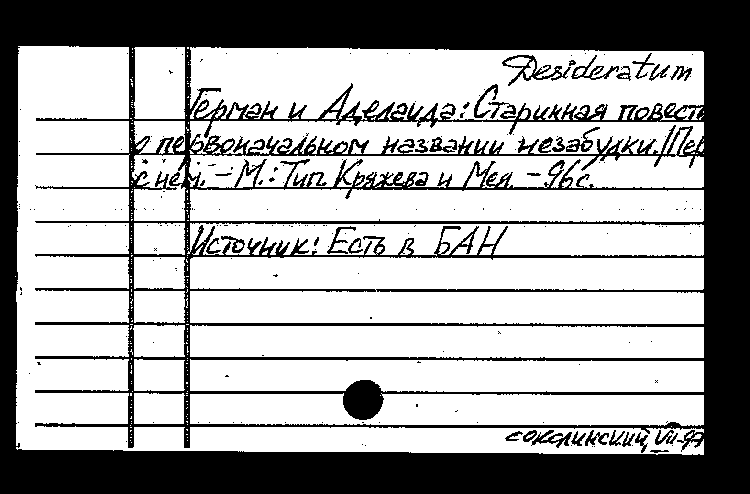 Desideratum
Герман и Аделаида: Старинная повесть
о первоначальном названии незабудки. /Пер
с нем. – М.: Тип. Кряжева и Мея. – 96 с.
Источник: Есть в БАН
соколинский, VII-97